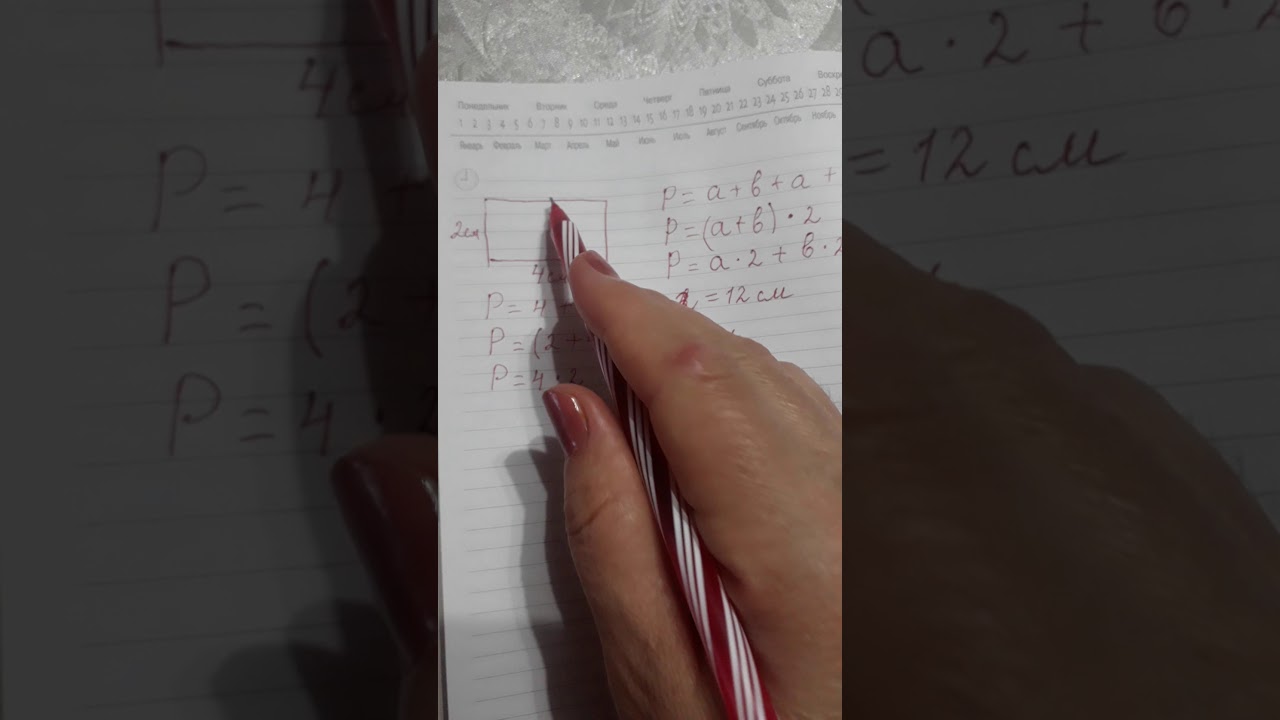 Понедельник Вторник Среда Четверг Пятница Суббота
1 2 3 4 5 6 7 8 9 10 11 12 13 14 15 16 17 18 19 20 21 22 23 24 25 26 27 28
Январь Февраль Март Апрель Май Июнь Июль Август Сентябрь Октябрь Ноябрь
1
2см
4см
P = a + b + a +
P = (a + b) · 2
P = a · 2 + b · 2
P = 4 + = 12 см
P = (2 +
P = 4 · 2